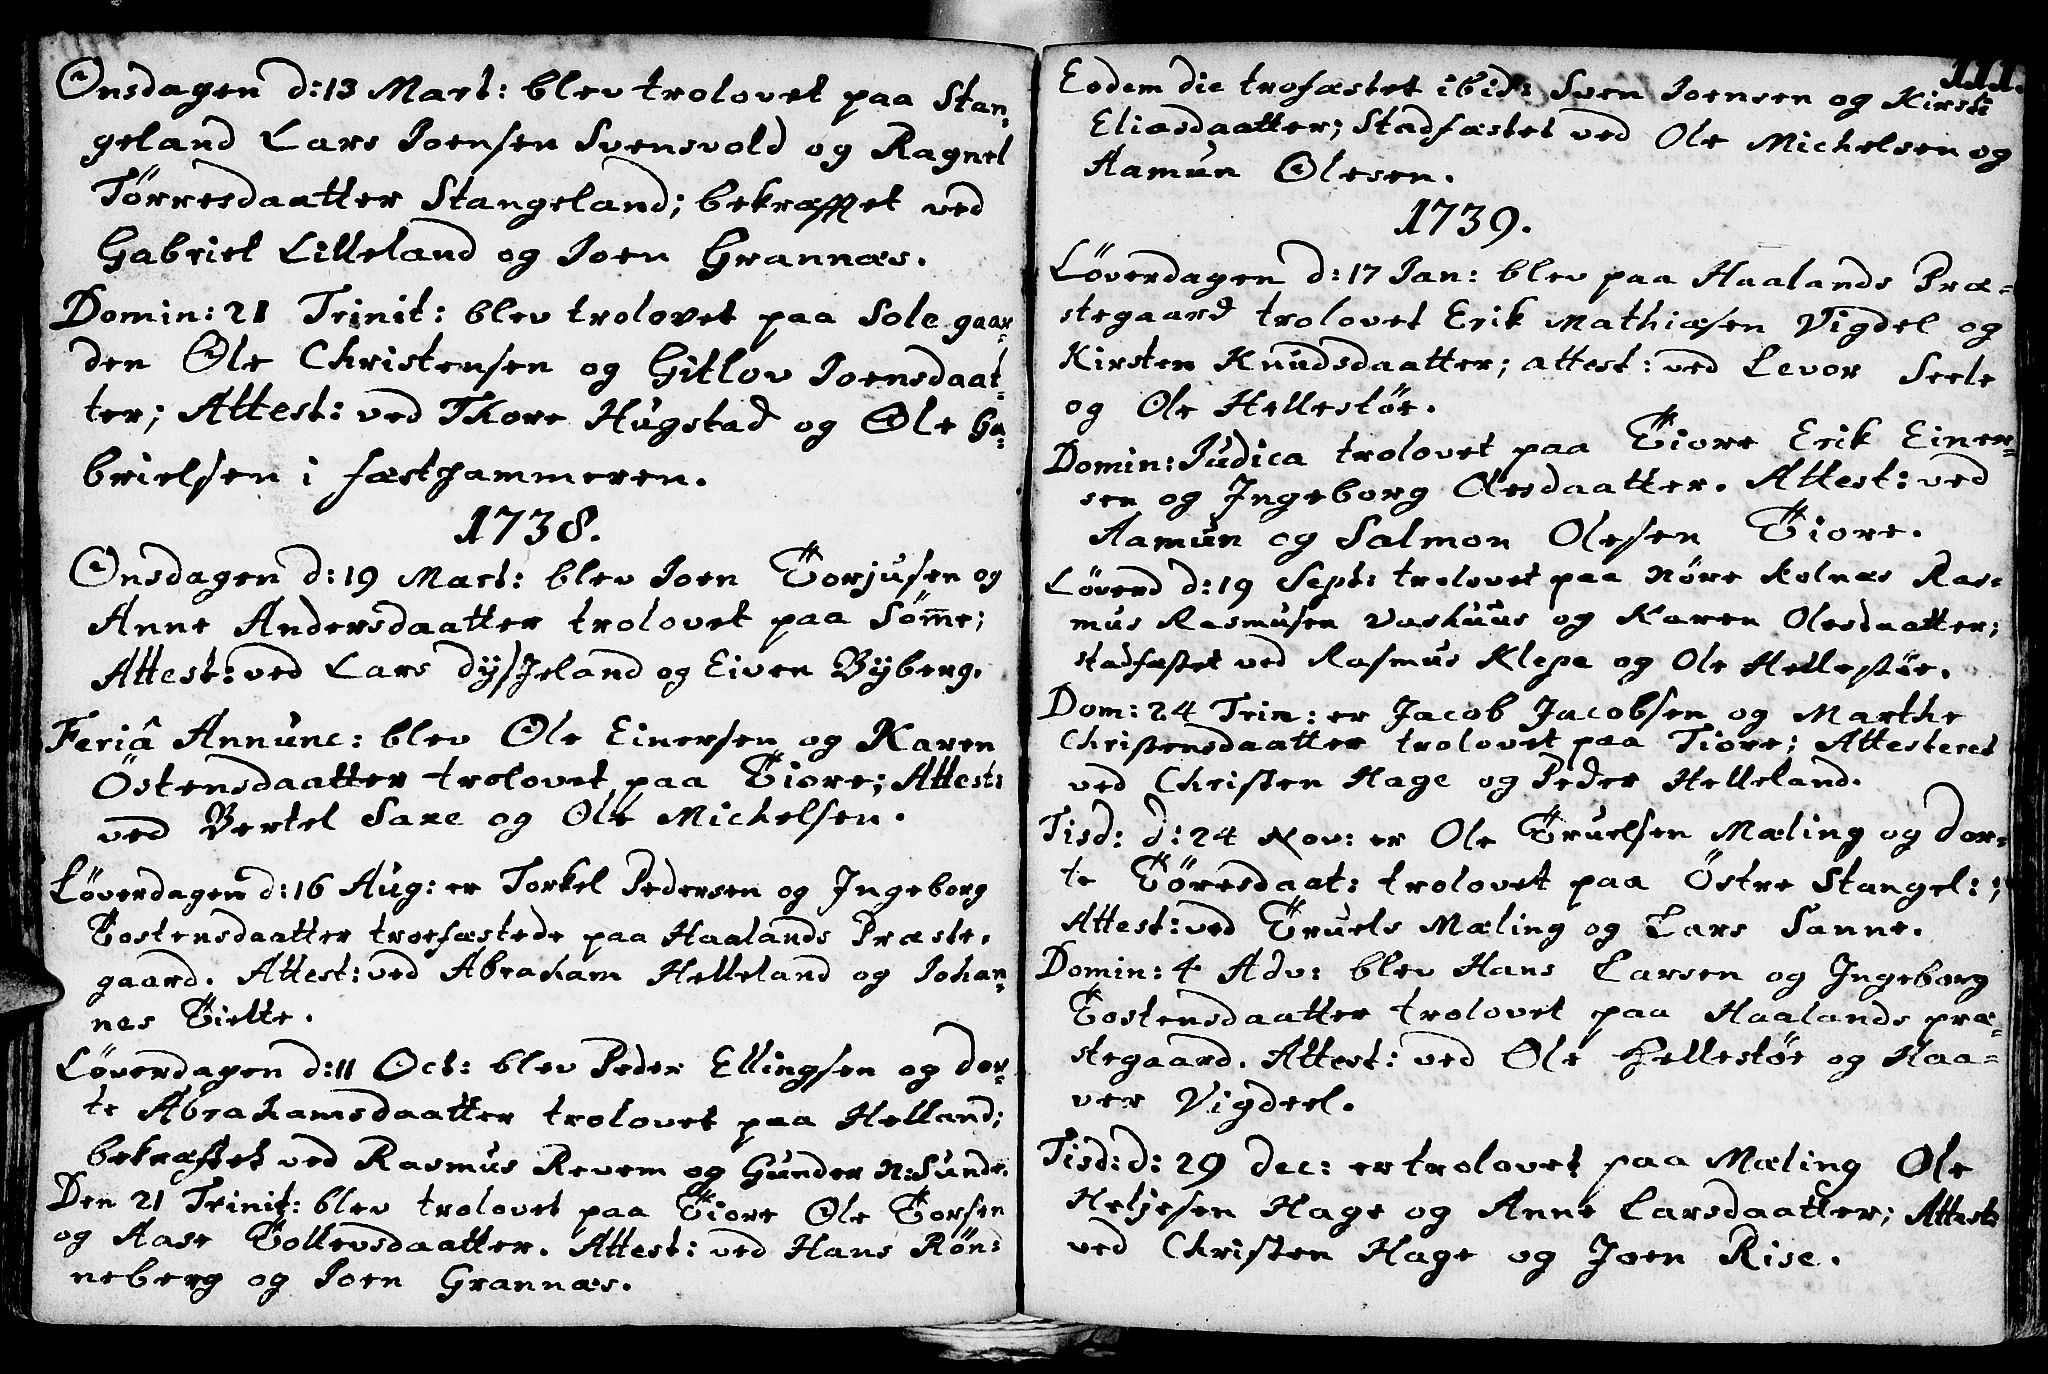 Onsdagen d: 13 Mart: blev trolovet paa Stan-
geland Lars Joensen Svensvold og Ragnel
Törresdaatter Stangeland; bekræfftet ved
Gabriel Lilleland og Joen Grannæs.
Domin: 21 Trinit: blev trolovet paa Sole gaar-
den Ole Christensen og Gitlov Joensdaat-
ter; Attest: ved Thore Hugstad og Ole Ga-
brielsen i
1738.
Onsdagen d: 19 Mart: blev Joen Torjusen og
Anne Andersdaatter trolovet paa Söm̅e;
Attest: ved Lars Dÿsjeland og Eiven Bÿberg.
Feriâ Annunc: blev Ole Einersen og Karen
Östensdaatter trolovet paa Tiore; Attest:
ved Bertel Saxe og Ole Michelsen.
Löverdagen d: 16 Aug: er Torkel Pedersen og Ingeborg
Tostensdaatter troefæstede paa Haalands Præste-
gaard. Attest: ved Abraham Helleland og Johan-
nes Tielte.
Löverdagen d: 11 Oct: blev Peder Ellingsen og dor-
te Abrahamsdaatter trolovet paa Helland;
bekræftet ved Rasmus Revem og Gunder N: Sunde.
Den 21 Trinit: blev trolovet paa Tiore Ole Torsen
og Aase Tollevsdaatter. Attest: ved Hans Rön-
neberg og Joen Grannæs.
111.
Eodem die trofæstet ibid: Sven Joensen og Kirsti
Eliasdaatter; Stadfæstet ved Ole Michelsen og
Aamun Olesen.
1739.
Löverdagen d: 17 Jan: blev paa Haalands Præ-
stegaard trolovet Erik Mathiæsen Vigdel og
Kirsten Knudsdaatter; attest: ved Levor Seele
og Ole Hellestöe.
Domin: Judica trolovet paa Tiore Erik Einer-
sen og Ingeborg Olesdaatter. Attest: ved
Aamun og Salmon Olesen Tiore.
Löverd d: 19 Sept: trolovet paa Nöre Kolnæs Ras-
mus Rasmusen Vashuus og Karen Olesdaatter;
stadfæstet ved Rasmus Klepe og Ole Hellestöe.
Dom: 24 Trin: er Jacob Jacobsen og Marthe
Christensdaatter trolovet paa Tiore; Attesteret
ved Christen Hage og Peder Helleland.
Tisd: d: 24 Nov: er Ole Truelsen Mæling og Dor-
te Töresdaat: trolovet paa Östre Stangel:;
Attest: ved Truels Mæling og Lars Sanne.
Domin: 4 Adv: blev Hans Larsen og Ingeborg
Tostensdaatter trolovet paa Haalands præ-
stegaard. Attest: ved Ole Hellestöe og Haa-
ver Vigdeel.
Tisd: d: 29 Dec: er trolovet paa Mæling Ole
Heljesen Hage og Anne Larsdaatter; Attest:
ved Christen Hage og Joen Rise.